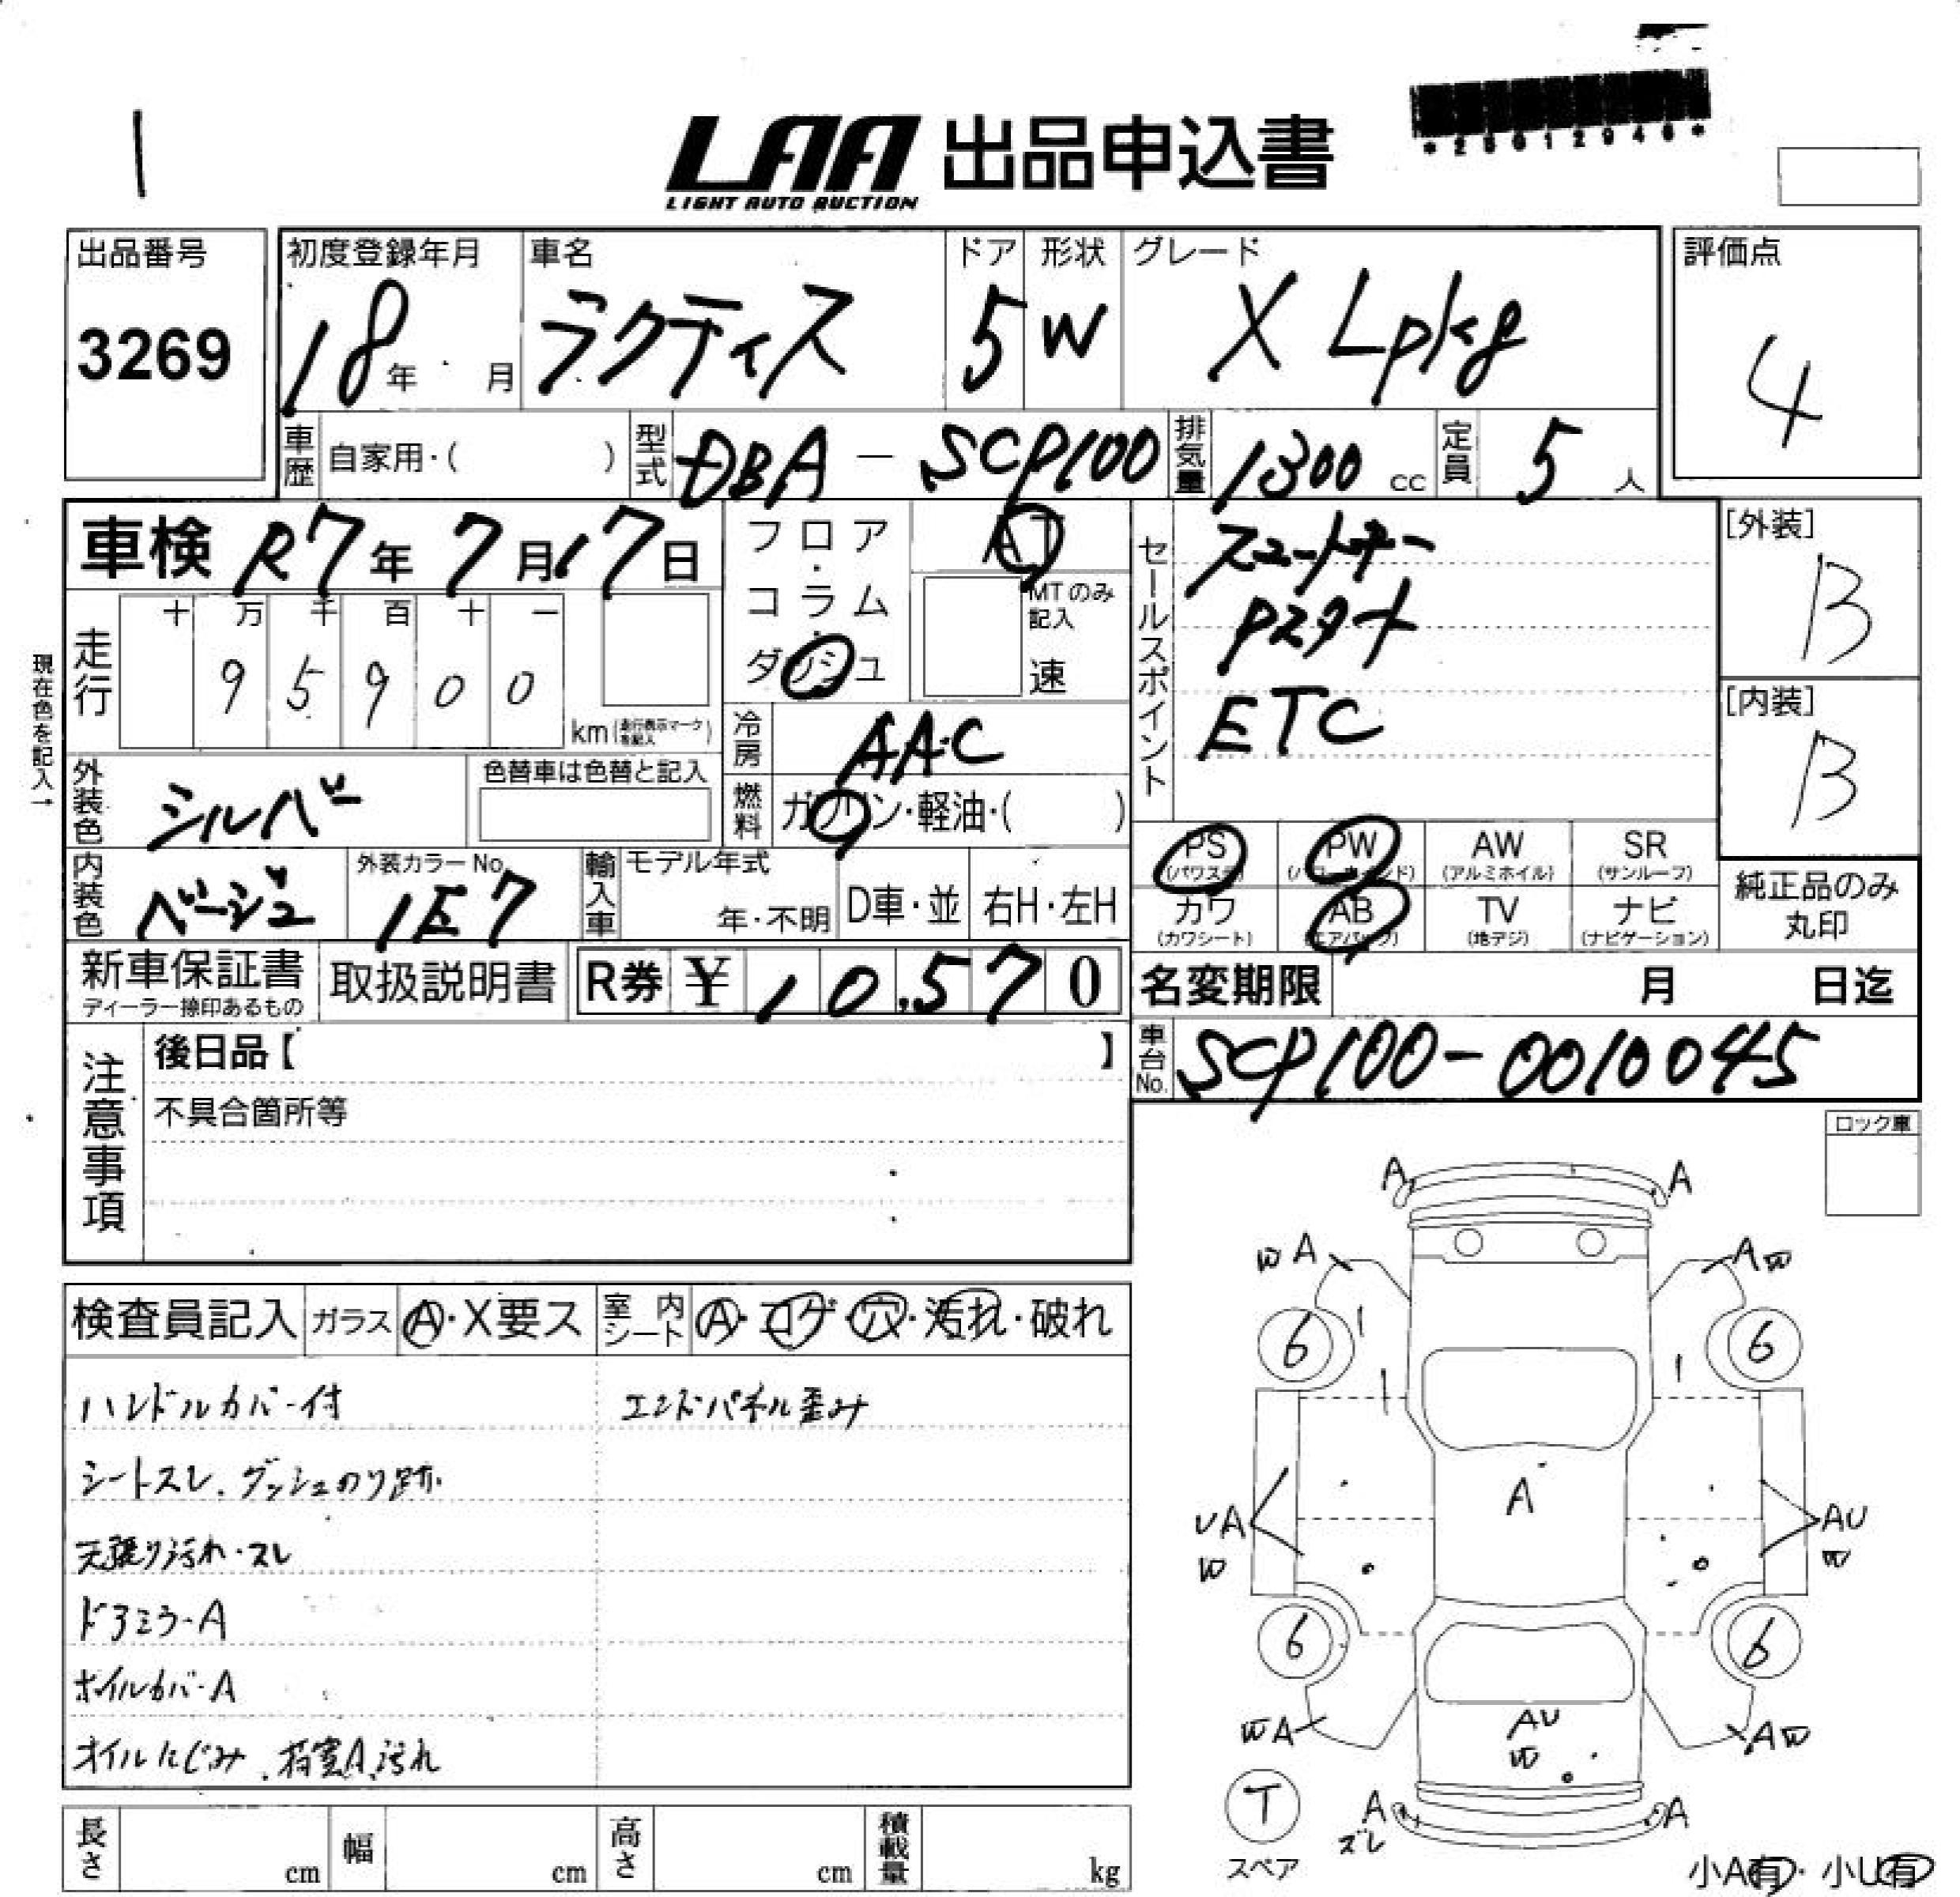 LAA 出品申込書
LIGHT AUTO AUCTION
出品番号 初度登録年月 車名 ドア 形状 グレード 評価点
3269 18年 月 ラクティス 5 W X Lpkg 4
車歴 自家用・( ) 型式 DBA-SCP100 排気量 1300 cc 定員 5 人
車検 R7年 7月17日
フロア・コラム・ダッシュ AT
MTのみ記入
速
セールスポイント
スマートキー
Pスタート
ETC
[外装]
B
[内装]
B
現在色を記入→
走行 十 万 千 百 十 一
9 5 9 0 0
km(走行表示マークを記入)
冷房 AAC
外装色 シルバー 色替車は色替と記入
燃料 ガソリン・軽油・( )
内装色 ベージュ 外装カラーNo. 1E7
輸入車 モデル年式 年・不明 D車・並 右H・左H
PS (パワステ) PW (パワーウィンド) AW (アルミホイル) SR (サンルーフ)
カワ (カワシート) AB (エアバッグ) TV (地デジ) ナビ (ナビゲーション)
純正品のみ
丸印
新車保証書 取扱説明書 R券 ¥ 10,570
ディーラー捺印あるもの
名変期限 月 日迄
車台No. SCP100-0010045
注意事項
後日品【 】
不具合箇所等
ロック車
検査員記入 ガラス A・X要ス 室内シート A・コゲ・穴・汚れ・破れ
ハンドルカバー付 エンドパネル歪み
シートスレ、ダッシュのり跡
天張り汚れ・スレ
ドアミラーA
ホイルカバーA
オイルにじみ、荷室A、汚れ
A A
W A A W
6 6
A
U A A U
W W
6 6
A U
W
W A A W
T
スペア
A A
ズレ
小A有・小U有
長さ cm 幅 cm 高さ cm 積載量 kg